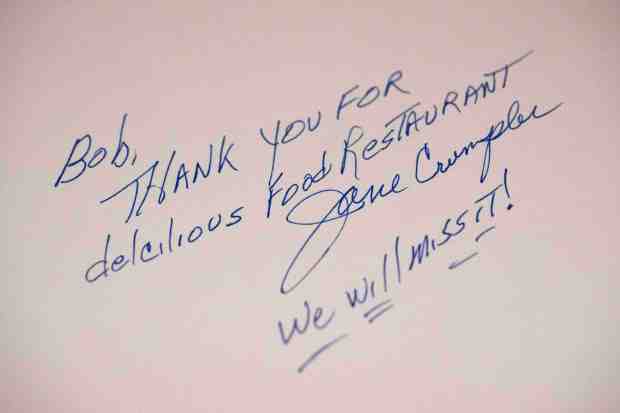 Bob,
THANK YOU FOR
delcilious Food RESTAURANT
Jane Crumpler
We will miss it!